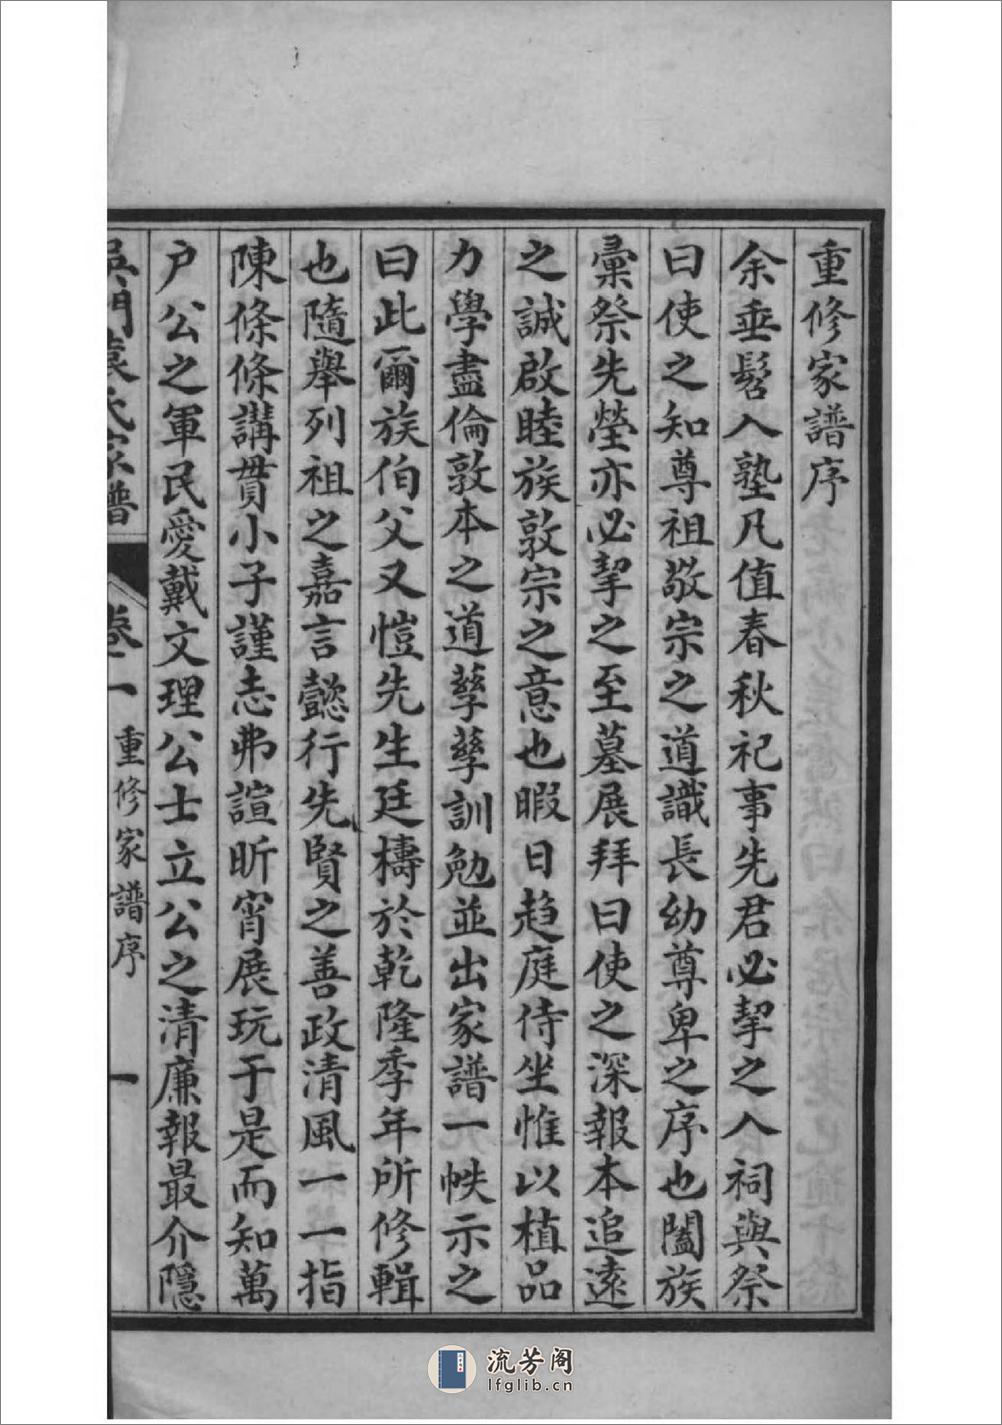 重修家譜序
余垂髫入塾凡值春秋祀事先君必挈之入祠與祭
曰使之知尊祖敬宗之道識長幼尊卑之序也闔族
彙祭先塋亦必挈之至墓展拜曰使之深報本追遠
之誠啟睦族敦宗之意也暇日趋庭侍坐惟以植品
力學盡倫敦本之道孳孳訓勉並出家譜一帙示之
曰此爾族伯父又愷先生廷檮於乾隆季年所修輯
也隨舉列祖之嘉言懿行先賢之善政清風一一指
陳條條講貫小子謹志弗諠昕宵展玩于是而知萬
户公之軍民愛戴文理公士立公之清廉報最介隱
吳門袁氏家譜
卷一
重修家譜序
一
流芳阁
lfglib.cn